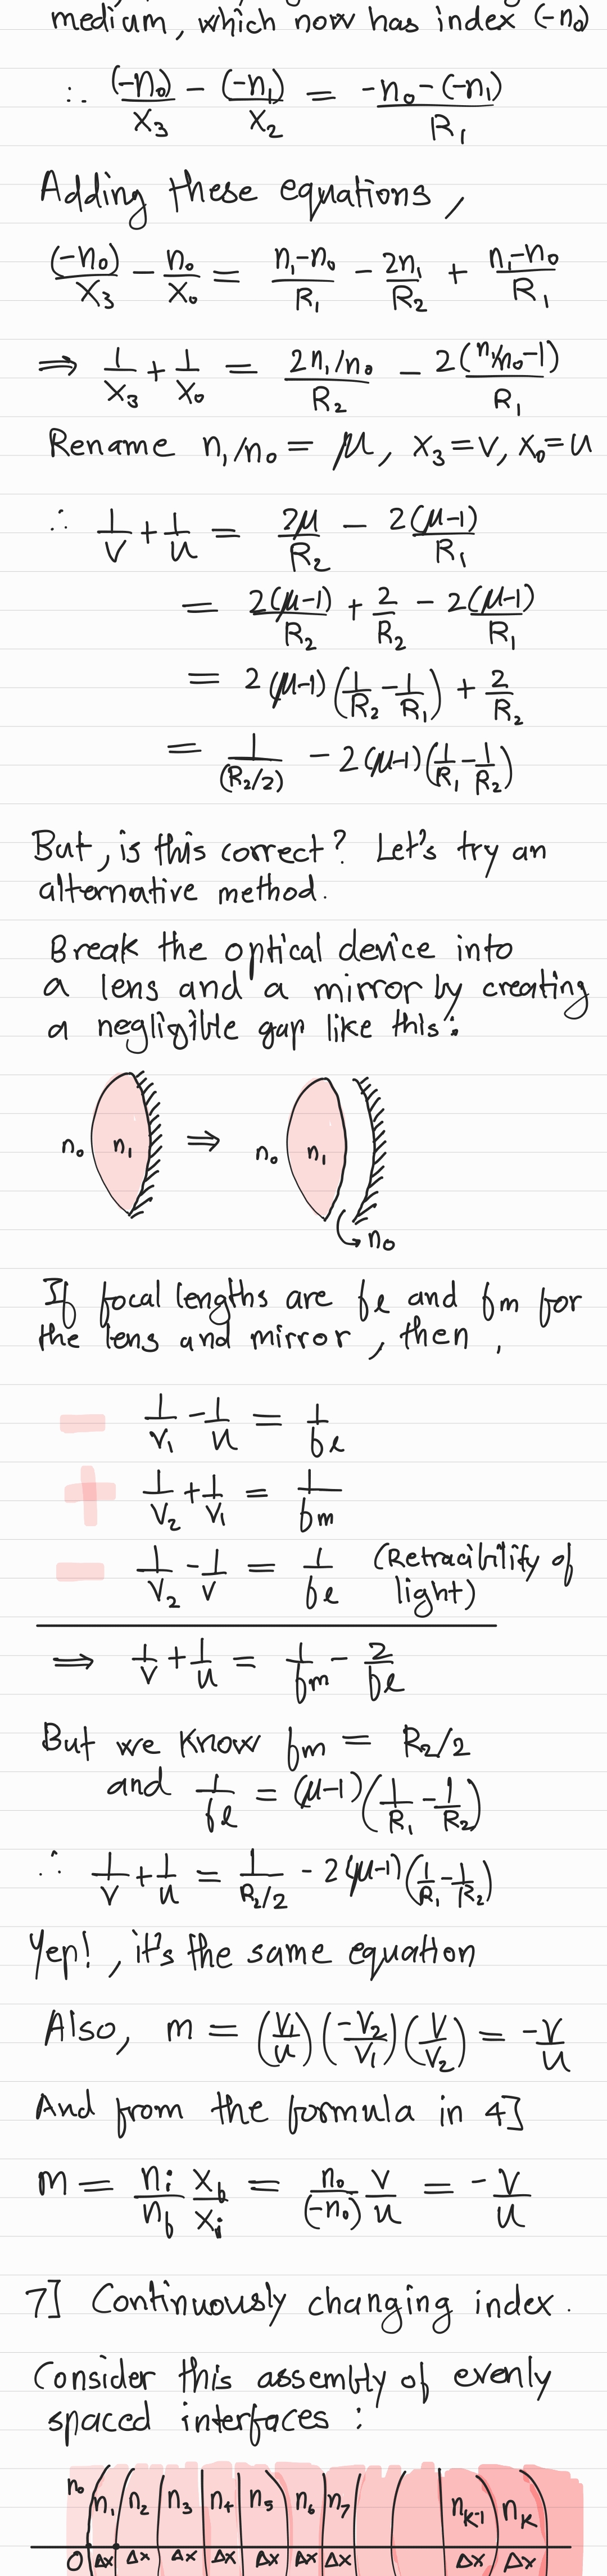 medium, which now has index (-n₀)
∴ (-n₀)/x₃ - (-n₁)/x₂ = -n₀-(-n₁)/R₁
Adding these equations,
(-n₀)/x₃ - n₀/x₀ = n₁-n₀/R₁ - 2n₁/R₂ + n₁-n₀/R₁
⇒ 1/x₃ + 1/x₀ = 2n₁/n₀/R₂ - 2(n₁/n₀-1)/R₁
Rename n₁/n₀ = μ, x₃=v, x₀=u
∴ 1/v + 1/u = 2μ/R₂ - 2(μ-1)/R₁
= 2(μ-1)/R₂ + 2/R₂ - 2(μ-1)/R₁
= 2(μ-1)(1/R₂ - 1/R₁) + 2/R₂
= 1/(R₂/2) - 2(μ-1)(1/R₁ - 1/R₂)
But, is this correct? Let's try an
alternative method.
Break the optical device into
a lens and a mirror by creating
a negligible gap like this:
n₀ n₁ ⇒ n₀ n₁
n₀
If focal lengths are fl and fm for
the lens and mirror, then,
- 1/v₁ - 1/u = 1/fl
+ 1/v₂ + 1/v₁ = 1/fm
- 1/v₂ - 1/v = 1/fl (Retracibility of
light)
⇒ 1/v + 1/u = 1/fm - 2/fl
But we know fm = R₂/2
and 1/fl = (μ-1)(1/R₁ - 1/R₂)
∴ 1/v + 1/u = 1/R₂/2 - 2(μ-1)(1/R₁ - 1/R₂)
Yep!, it's the same equation
Also, m = (v₁/u)(-v₂/v₁)(v/v₂) = -v/u
And from the formula in 4]
m = nᵢ/nf xf/xᵢ = n₀/(-n₀) v/u = -v/u
7] Continuously changing index.
Consider this assembly of evenly
spaced interfaces:
n₀ n₁ n₂ n₃ n₄ n₅ n₆ n₇ nₖ₋₁ nₖ
0 Δx Δx Δx Δx Δx Δx Δx Δx Δx